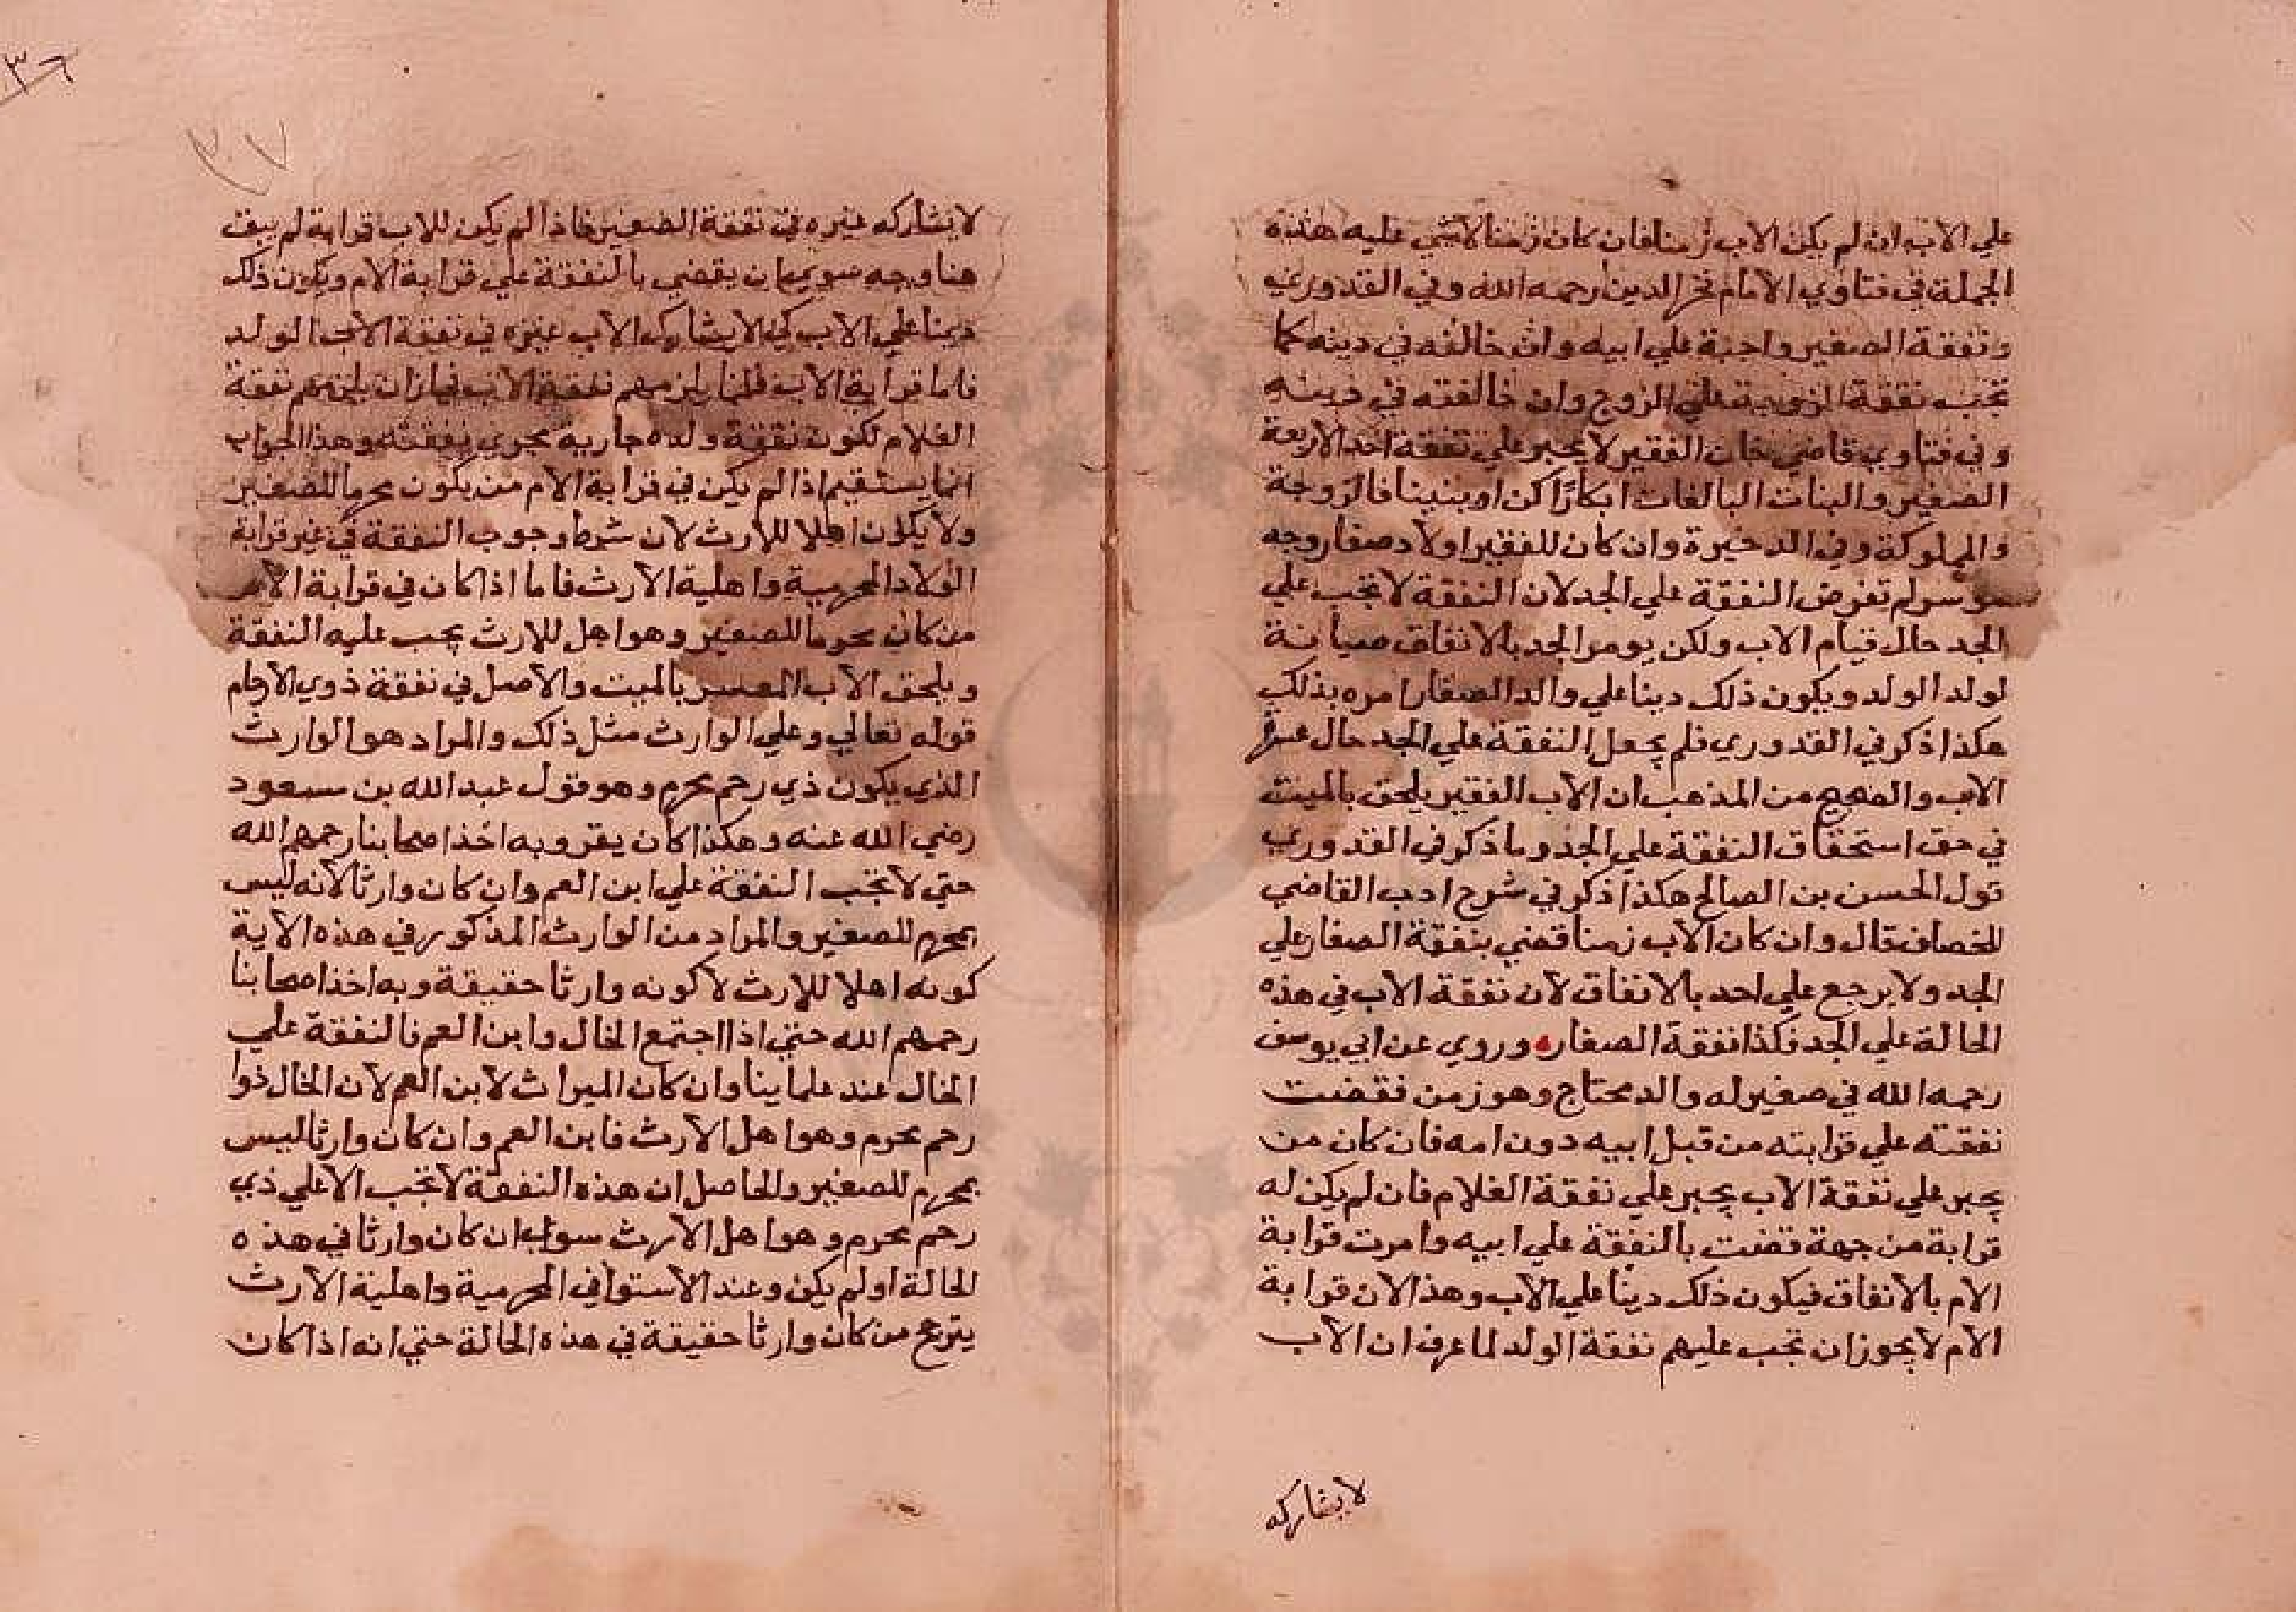 علي الاب ان لم يكن الاب زمنا فان كان زمنا لا شي عليه هذه
الجملة في فتاوي الامام فخر الدين رحمه الله وفي القدوري
ونفقة الصغير واجبة علي ابيه وان خالفه في دينه كما
تجب نفقة الزوجية علي الزوج وان خالفته في دينه
وفي فتاوي قاضي خان الفقير لا يجبر علي نفقة احد الا اربعة
الصغير والبنات البالغات ابكارًا كن او بنينا فالزوجة
والمملوكة وفي الدخيرة وان كان للفقير اولاد صغار وجه
موسر لم تفرض النفقة علي الجد لان النفقة لا تجب علي
الجد حال قيام الاب ولكن يومر الجد بالانفاق صيانة
لولد الولد ويكون ذلك دينا علي والد الصغار امره بذلك
هكذا ذكر في القدوري فلم يجعل النفقة علي الجد حال عسرة
الاب والصحيح من المذهب ان الاب الفقير يلحق بالميت
في حق استحقاق النفقة علي الجد وما ذكر في القدوري
قول الحسن بن الصالح هكذا ذكر في شرح ادب القاضي
للخصاف قال وان كان الاب زمنا قضي بنفقة الصغار علي
الجد ولا يرجع علي احد بالانفاق لان نفقة الاب في هذه
الحالة علي الجد فكذا نفقة الصغار وروي عن ابي يوسف
رحمه الله في صغير له والد محتاج وهو زمن فقضت
نفقته علي قرابته من قبل ابيه دون امه فان كان من
يجبر علي نفقة الاب يجبر علي نفقة الغلام فان لم يكن له
قرابة من جهة قضت بالنفقة علي ابيه وامرت قرابة
الام بالانفاق فيكون ذلك دينًا علي الاب وهذا الان قرابة
الام لا يجوز ان تجب عليهم نفقة الولد لما عرف ان الاب
لا يشاركه
٣٦
٣٧
لا يشاركه غيره في نفقة الصغير فاذا لم يكن للاب قرابة لم يبق
هنا وجه سوي ان يقضي بالنفقة علي قرابة الام ويكون ذلك
دينا علي الاب كي لا يشارك الاب غيره في نفقة الولد
فاما قرابة الاب فلنا يلزمهم نفقة الاب فجاز ان يلزمهم نفقة
الغلام لكون نفقة ولده جارية مجري نفقته وهذا الجواب
انما يستقيم اذا لم يكن في قرابة الام من يكون محرما للصغير
ولا يكون اهلا للارث لان شرط وجوب النفقة في غير قرابة
الولاد المحرمية واهلية الارث فاما اذا كان في قرابة الام
من كان محرما للصغير وهو اهل للارث يجب عليه النفقة
ويلحق الاب المعسر بالميت والاصل في نفقة ذوي الارحام
قوله تعالي وعلي الوارث مثل ذلك والمراد هو الوارث
الذي يكون ذي رحم محرم وهو قول عبد الله بن مسعود
رضي الله عنه وهكذا كان يقرو به اخذ اصحابنا رحمهم الله
حتي لا تجب النفقة علي ابن العم وان كان وارثا لانه ليس
بمحرم للصغير والمراد من الوارث المذكور في هذه الاية
كونه اهلا للارث لا كونه وارثا حقيقة وبه اخذ اصحابنا
رحمهم الله حتي اذا اجتمع الخال وابن العم فالنفقة علي
الخال عند علماينا وان كان الميراث لابن العم لان الخال ذوا
رحم محرم وهو اهل الارث فابن العم وان كان وارثا ليس
بمحرم للصغير والحاصل ان هذه النفقة لا تجب الا علي ذي
رحم محرم وهو اهل الارث سواء ان كان وارثا في هذه
الحالة او لم يكن وعند الاستوا في المحرمية واهلية الارث
يترجح من كان وارثا حقيقة في هذه الحالة حتي انه اذا كان